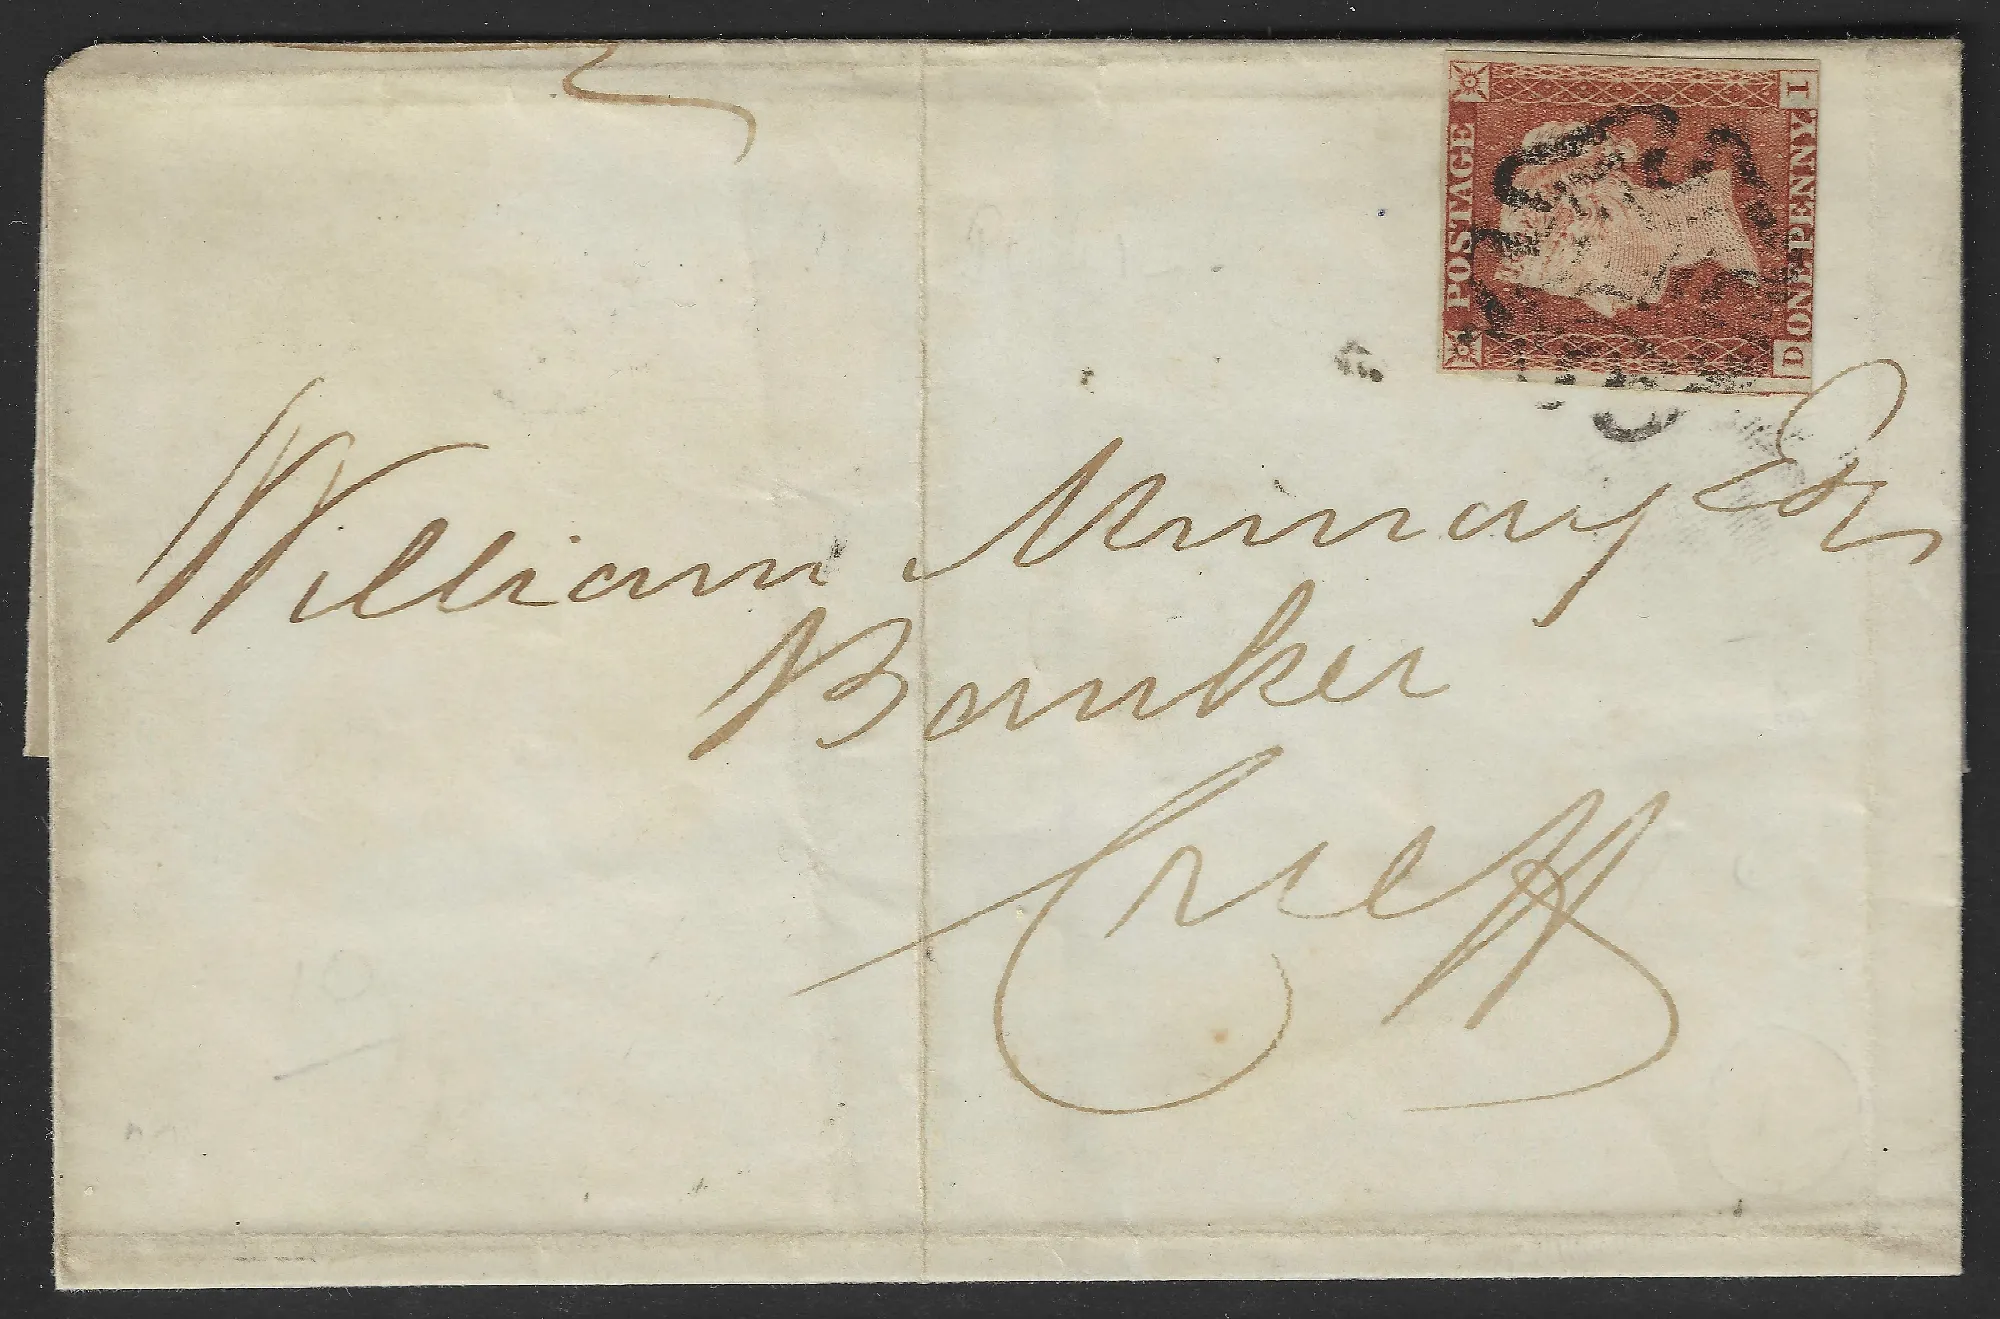 POSTAGE
ONE PENNY
D I
William Murray Esqr
Banker
Crieff